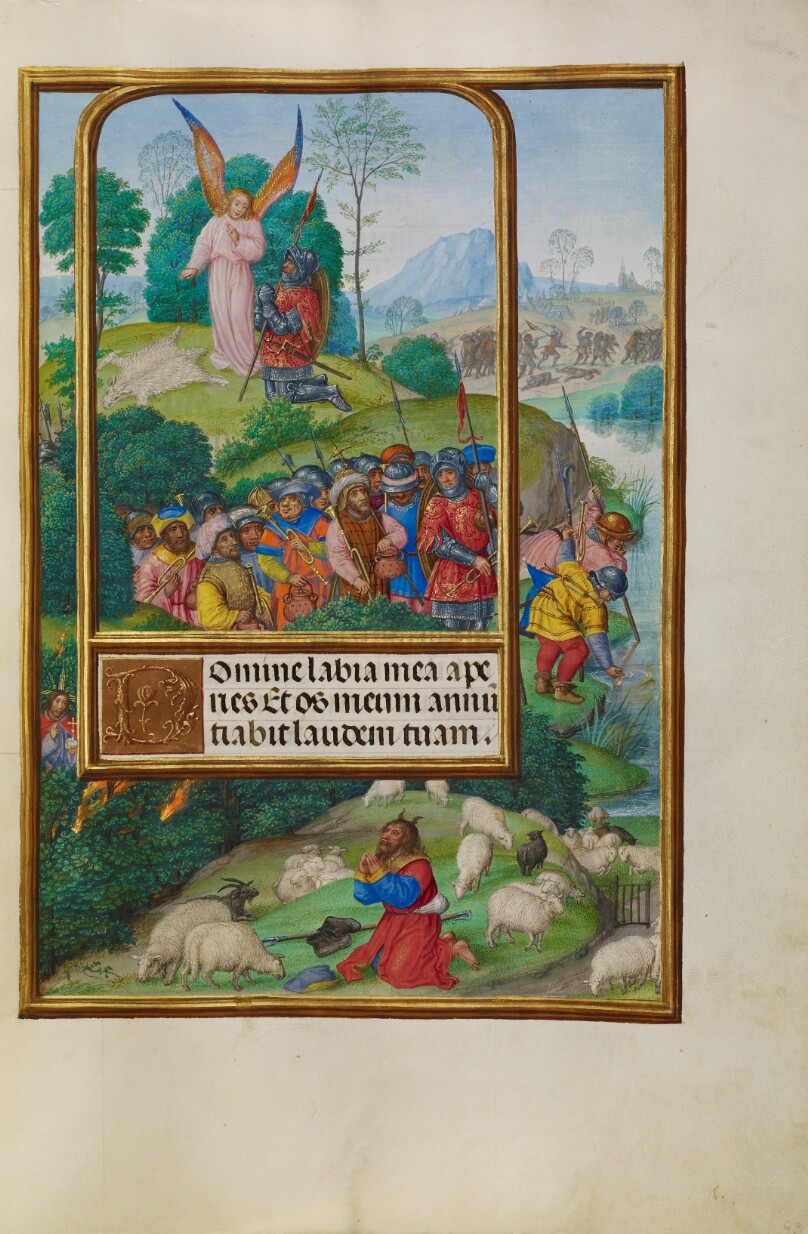 Domine labia mea ape
ries Et os meum annū
tiabit laudem tuam.
93